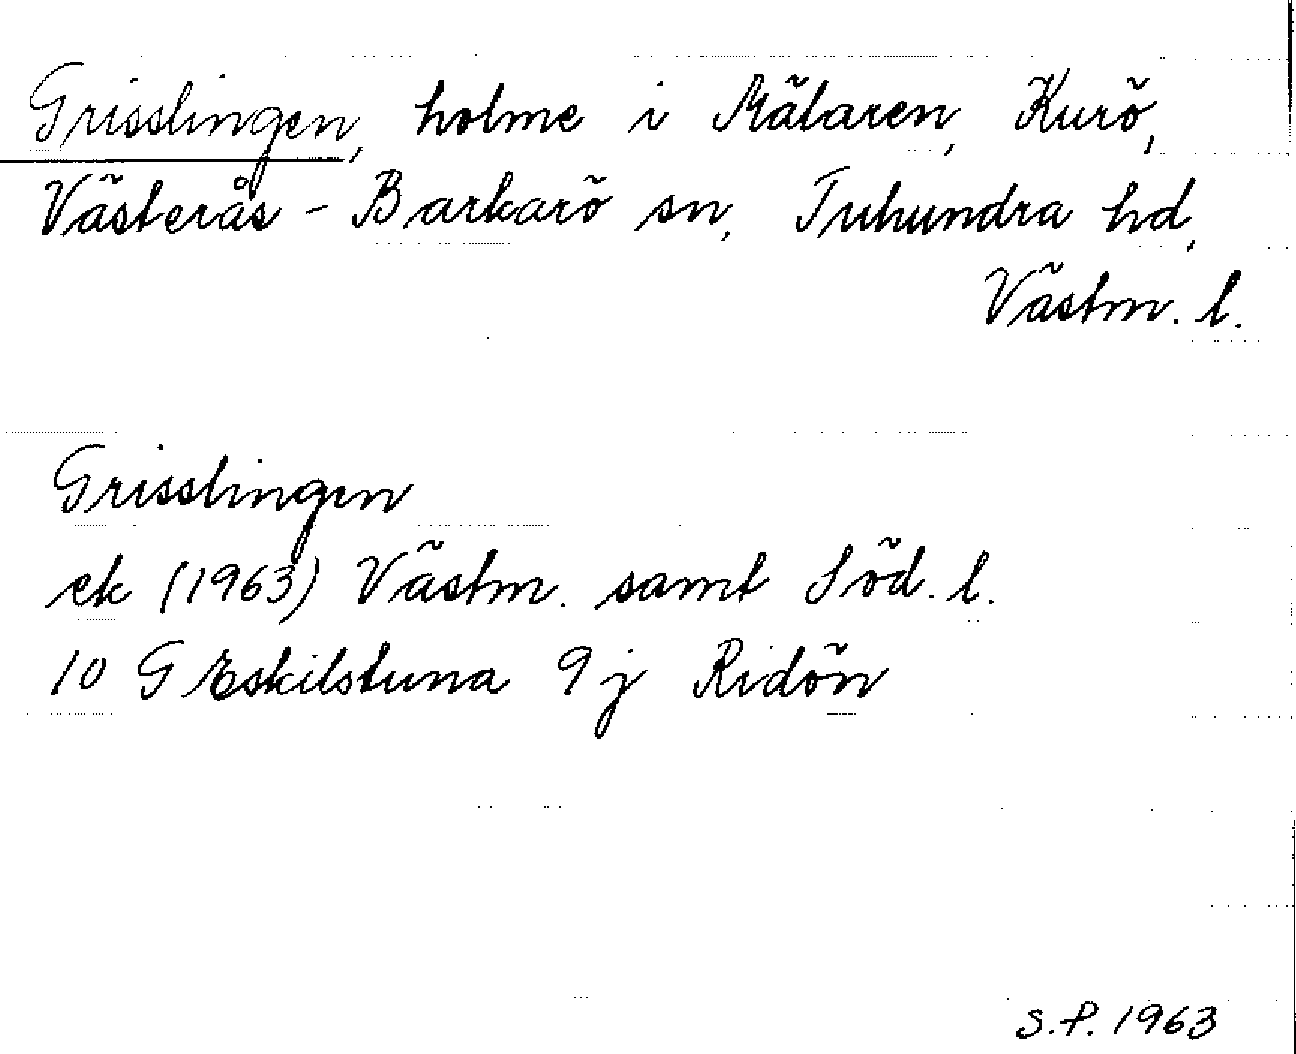 Grisslingen, holme i Mälaren, Kurö,
Västerås - Barkarö sn, Tuhundra hd,
Västm. l.
Grisslingen
ek (1963) Västm. samt Söd. l.
10 G Eskilstuna 9 j Ridön
S.P. 1963